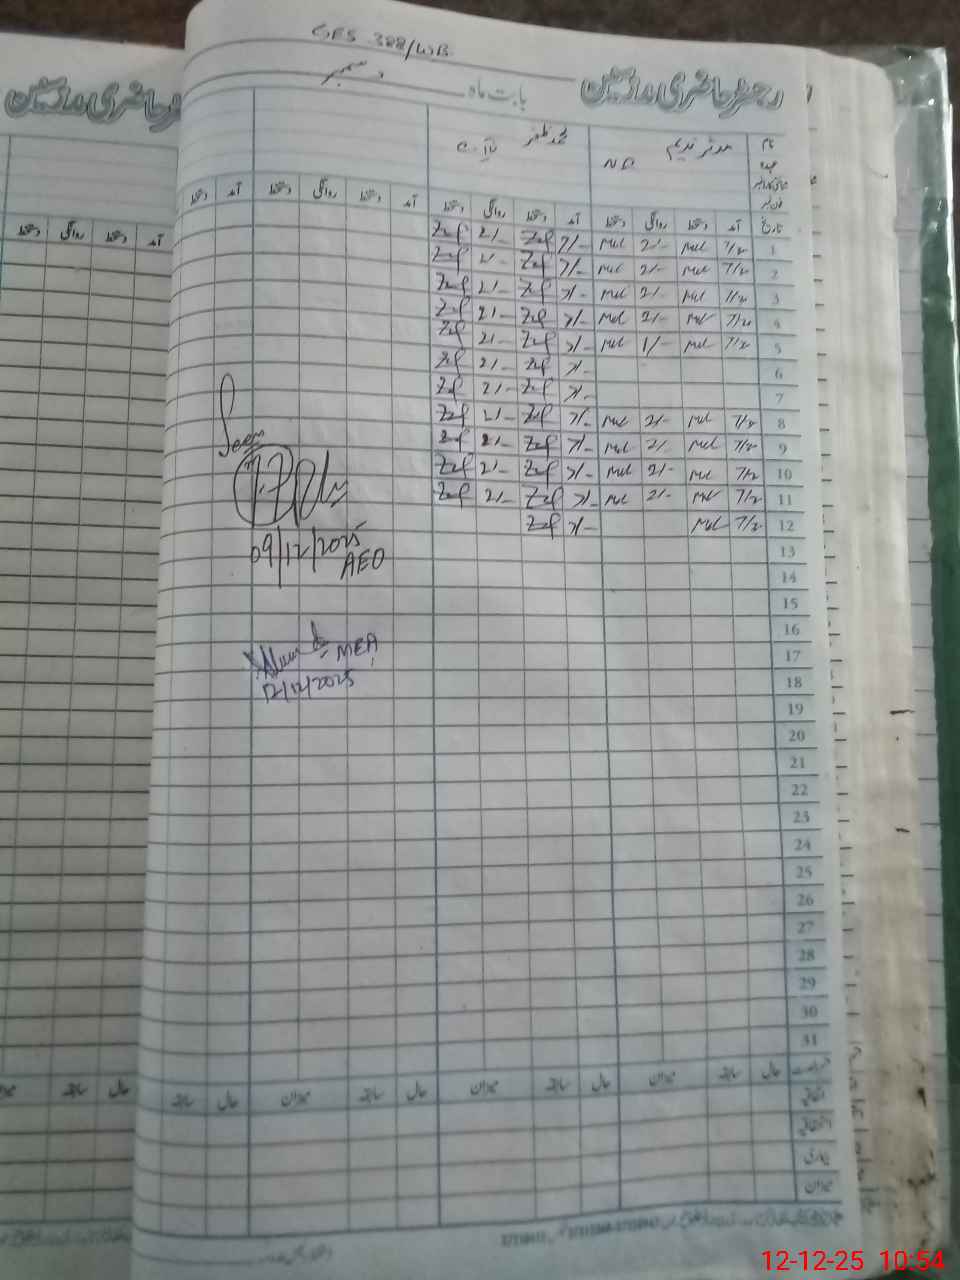 GES 388/WB
رجسٹر حاضری مدرسین
بابت ماہ دسمبر
نام مدثر ندیم محمد ظفر
عہدہ N.Q
تاریخ آمد دستخط روانگی دستخط آمد دستخط روانگی دستخط آمد دستخط روانگی دستخط آمد دستخط
1 7/2 Mul 2/- Mul 7/- Zaf 2/- Zaf
2 7/2 Mul 2/- Mul 7/- Zaf 2/- Zaf
3 7/2 Mul 2/- Mul 7/- Zaf 2/- Zaf
4 7/2 Mul 2/- Mul 7/- Zaf 2/- Zaf
5 7/2 Mul 1/- Mul 7/- Zaf 2/- Zaf
6 7/- Zaf 2/- Zaf
7 7/- Zaf 2/- Zaf
8 7/2 Mul 2/- Mul 7/- Zaf 2/- Zaf
9 7/2 Mul 2/- Mul 7/- Zaf 2/- Zaf
10 7/2 Mul 2/- Mul 7/- Zaf 2/- Zaf
11 7/2 Mul 2/- Mul 7/- Zaf 2/- Zaf
12 7/2 Mul 7/- Zaf
13
14
15
16
17
18
19
20
21
22
23
24
25
26
27
28
29
30
31
Seen
09/12/2025
AEO
MEA
12/12/2025
حال سابقہ میزان حال سابقہ میزان حال سابقہ میزان حال سابقہ
اتفاقی
بیماری
میزان
رجسٹر حاضری مدرسین
آمد دستخط روانگی دستخط
حال سابقہ
12-12-25 10:54